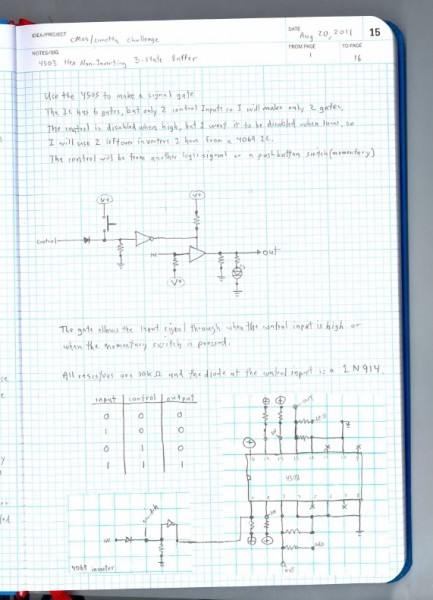 IDEA/PROJECT cmos/cmotty challenge
DATE Aug 20, 2011 15
NOTES/SIG
FROM PAGE 1 TO PAGE 16
4503 Hex Non-Inverting 3-State Buffer
Use the 4503 to make a signal gate
The IC has 6 gates, but only 2 control Inputs so I will make only 2 gates.
The control is disabled when high, but I want it to be disabled when low, so
I will use 2 leftover inverters I have from a 4069 IC.
The control will be from another logic signal or a pushbutton switch (momentary)
V+
V+
control
IN
out
V+
The gate allows the input signal through when the control input is high or
when the momentary switch is pressed.
All resistors are 10K Ω and the diode at the control input is a 1N914.
input control output
0 0 0
1 0 0
0 1 0
1 1 1
4503
IN
4069 inverter
OUT